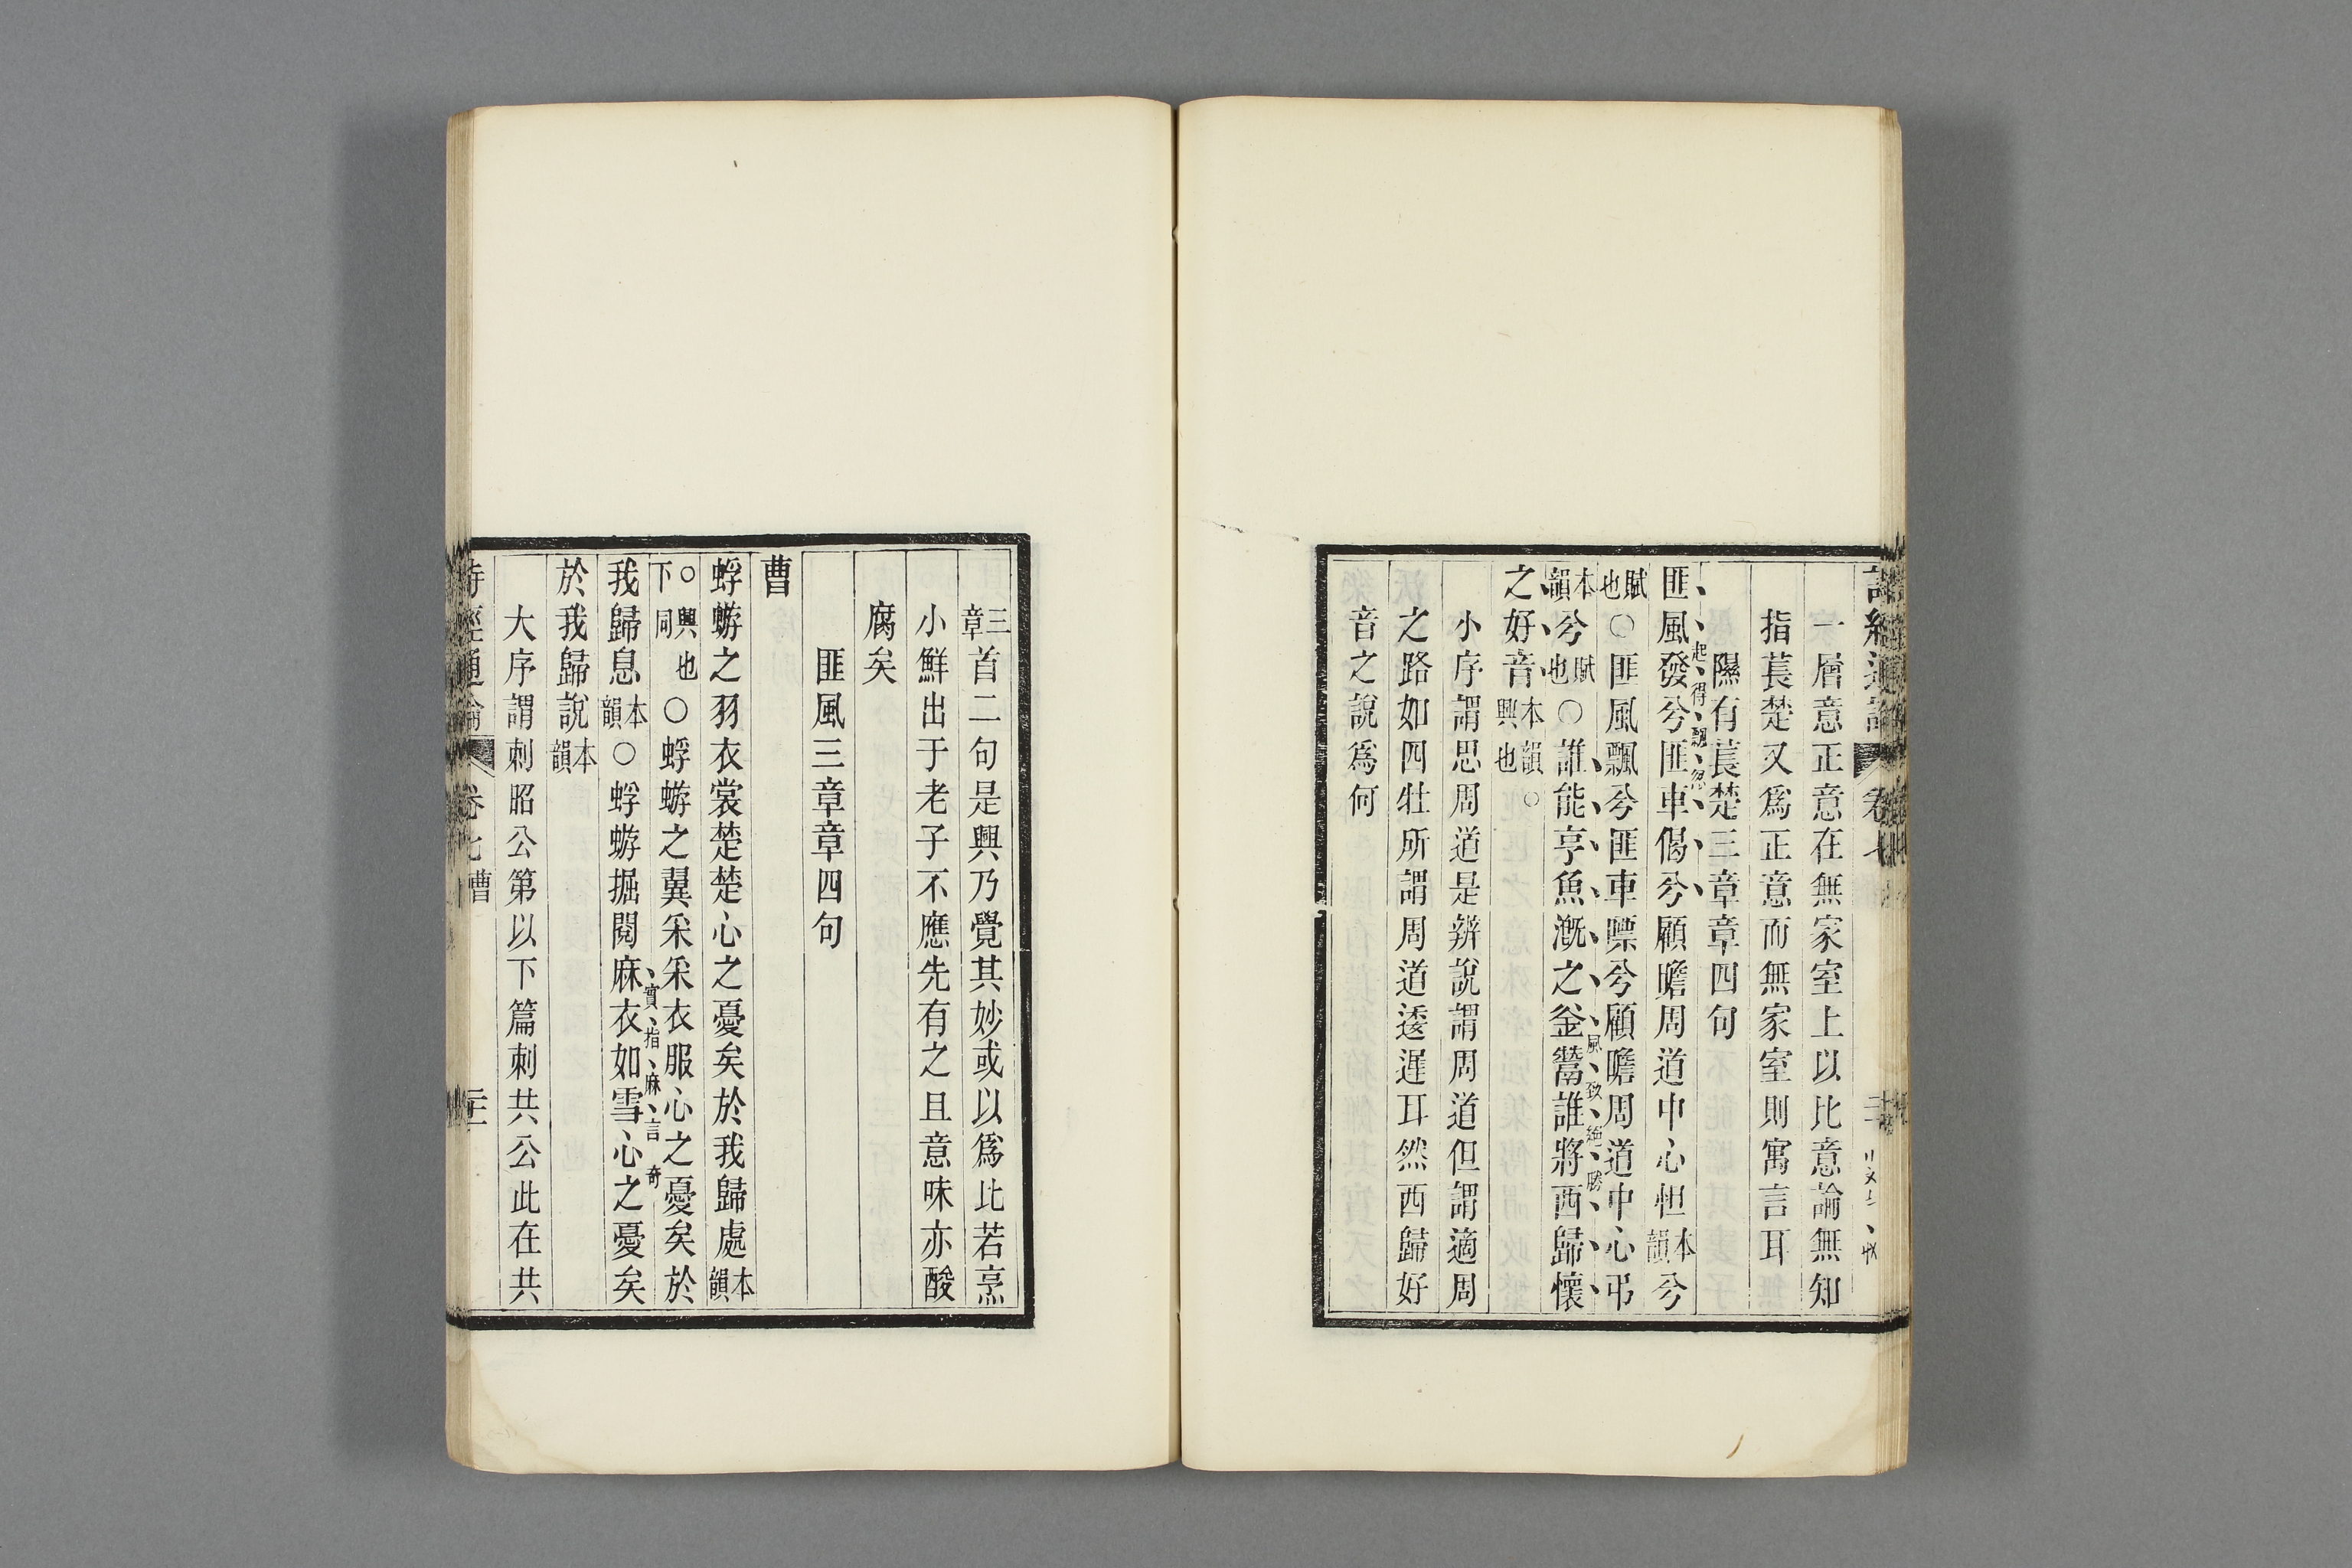 詩經通論 卷七
一層意正意在無家室上以比意論無知
指萇楚又爲正意而無家室則寓言耳
隰有萇楚三章章四句
起得飄忽
匪風發兮匪車偈兮顧瞻周道中心怛本韻兮
賦也○匪風飄兮匪車嘌兮顧瞻周道中心弔
風致絕勝
本韻兮賦也○誰能亨魚漑之釜鬵誰將西歸懷
之好音本韻興也○
小序謂思周道是辨說謂周道但謂適周
之路如四牡所謂周道逶遲耳然西歸好
音之說爲何
三章首二句是興乃覺其妙或以爲比若烹
小鮮出于老子不應先有之且意味亦酸
腐矣
匪風三章章四句
曹
蜉蝣之羽衣裳楚楚心之憂矣於我歸處本韻
○興也下同○蜉蝣之翼采采衣服心之憂矣於
實指麻言奇
我歸息本韻○蜉蝣掘閱麻衣如雪心之憂矣
於我歸說本韻
大序謂刺昭公第以下篇刺共公此在共
詩經通論 卷七 曹